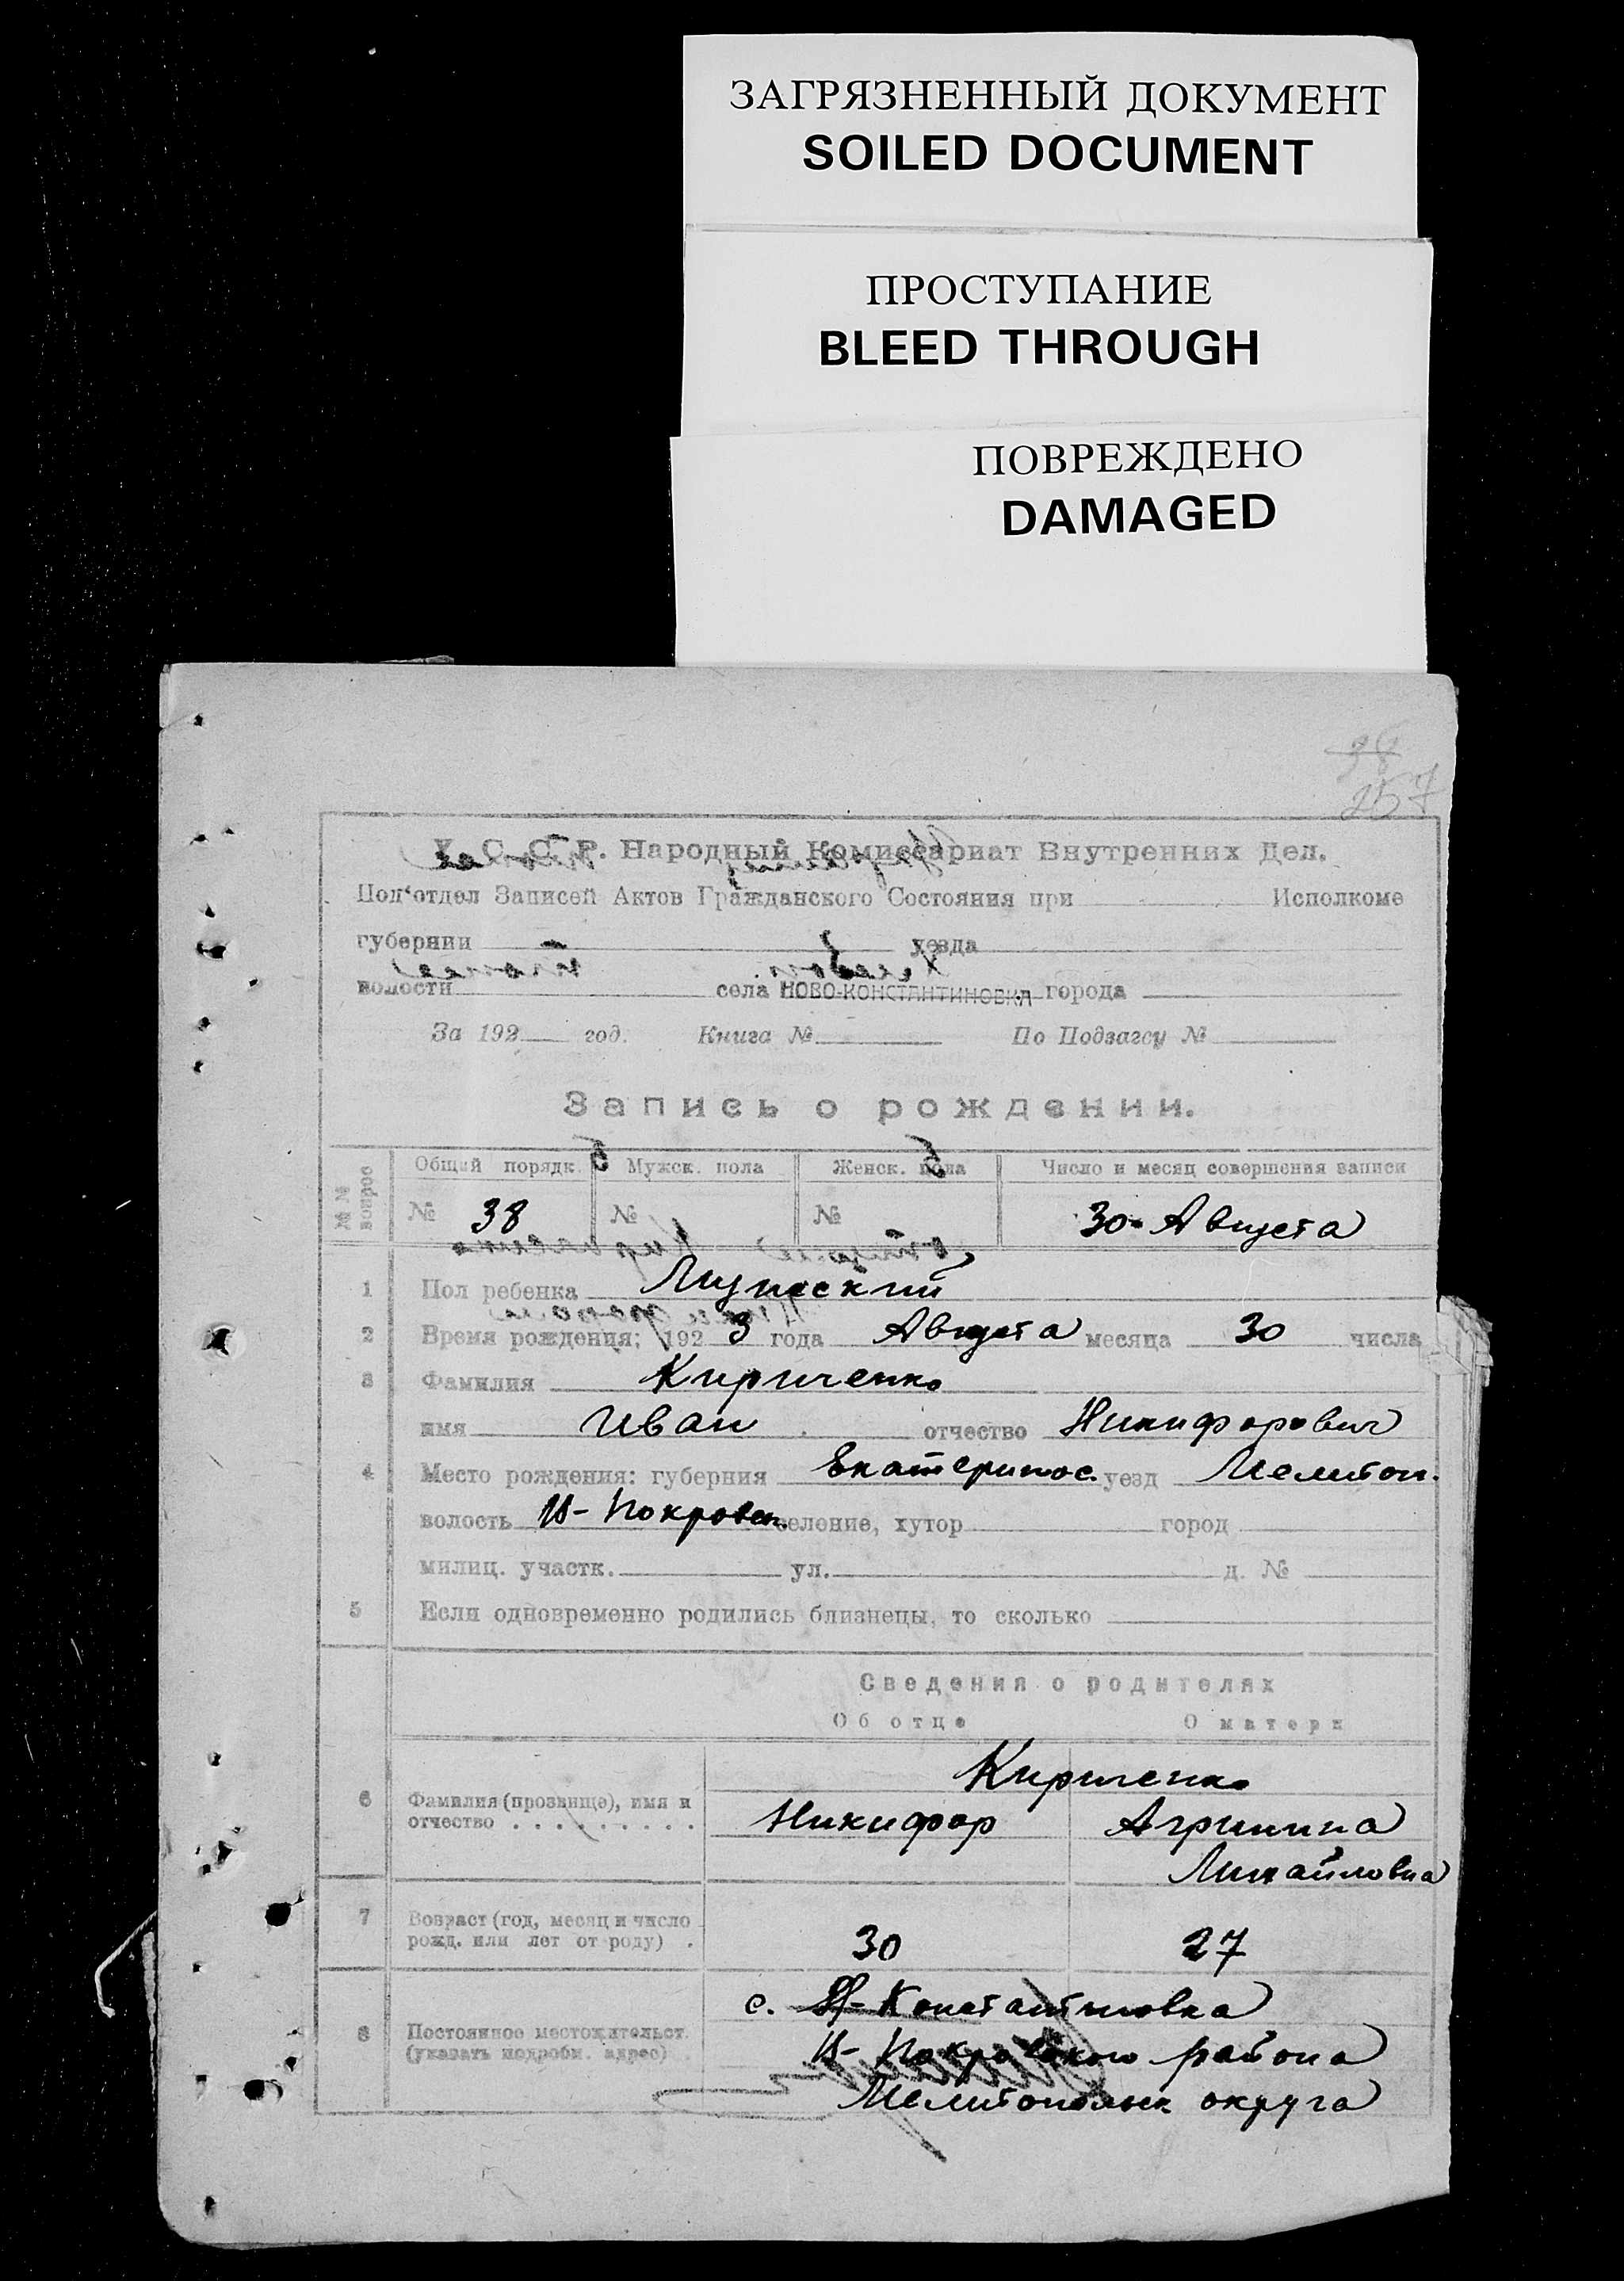 ЗАГРЯЗНЕННЫЙ ДОКУМЕНТ
SOILED DOCUMENT
ПРОСТУПАНИЕ
BLEED THROUGH
ПОВРЕЖДЕНО
DAMAGED
257
У. С. С. Р. Народный Комиссариат Внутренних Дел.
Под‘отдел Записей Актов Гражданского Состояния при Исполкоме
губернии уезда
волости села НОВО-КОНСТАНТИНОВКА города
За 192 год. Книга № По Подзагсу №
Запись о рождении.
№№ вопрос Общий порядк. Мужск. пола Женск. пола Число и месяц совершения записи
№ 38 № № 30 - Августа
1 Пол ребенка Мужеский
2 Время рождения: 192 3 года Августа месяца 30 числа
3 Фамилия Кириченко
имя Иван отчество Никифорович
4 Место рождения: губерния Екатеринос. уезд Мелитоп.
волость Н-Покровск. селение, хутор город
милиц. участк. ул. д. №
5 Если одновременно родились близнецы, то сколько
Сведения о родителях
Об отце О матери
Кириченко
6 Фамилия (прозвище), имя и Никифор Агрипина
отчество . . . . . . . . . Михайловна
7 Возраст (год, месяц и число
рожд. или лет от роду) . 30 27
с. Н-Константиновка
8 Постоянное местожительст. Н-Покровского района
(указать подробн. адрес) .
Мелитопольск округа